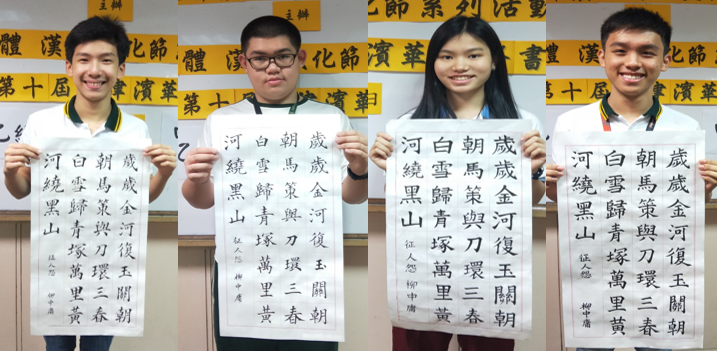 主辦
體 漢 化節
第十屆 律濱華
歲歲金河復玉關朝
朝馬策與刀環三春
白雪歸青塚萬里黃
河繞黑山
征人怨 柳中庸
主辦
體 漢 化節
第十屆 律濱華
歲歲金河復玉關朝
朝馬策與刀環三春
白雪歸青塚萬里黃
河繞黑山
征人怨 柳中庸
化節系列活動
歲歲金河復玉關朝
朝馬策與刀環三春
白雪歸青塚萬里黃
河繞黑山
征人怨 柳中庸
化節
第十屆 律濱華
歲歲金河復玉關朝
朝馬策與刀環三春
白雪歸青塚萬里黃
河繞黑山
征人怨 柳中庸